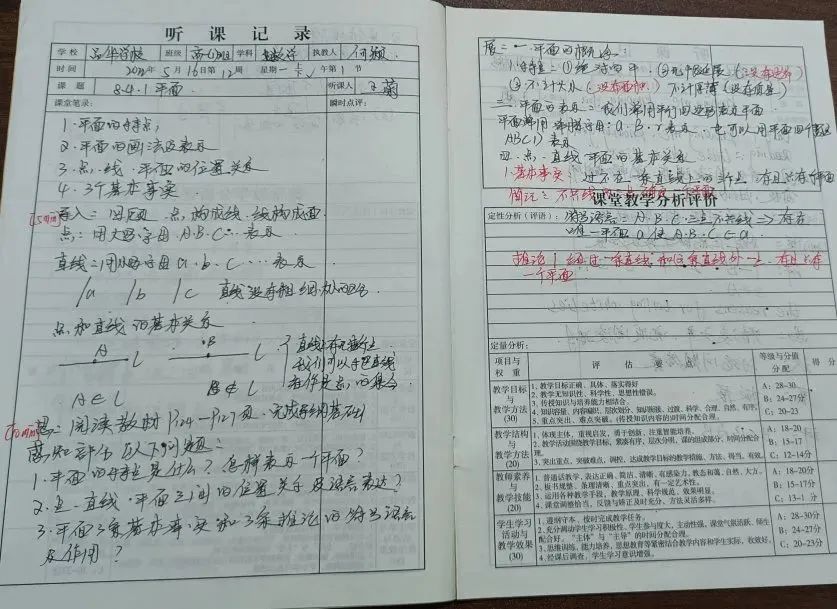 听课记录
学校 品华学校 班级 高一(1)班 学科 数学 执教人
时间 2022年5月16日第12周 星期一上午第1节
课题 8.4.1平面 听课人
课堂笔录: 瞬时点评:
1.平面的特点;
2.平面的画法及表示
3.点.线.平面的位置关系
4.3个基本事实
(5mm)导入:回顾 点构成线.线构成面
点:用大写字母A.B.C…表示
直线:用小写字母a.b.c…表示
a b c 直线没有粗细的区分
点和直线的基本关系
A L B L 直线上有无数个点
我们可以把直线
A∈L B∉L 看作是点的集合
(10mm)思:阅读教材P124—P127页.完成
感知部分及以下问题:
1.平面的特点是什么?怎样表示一个平面?
2.点.直线.平面之间的位置关系及语言表达?
3.平面3条基本事实和3条推论的符号语言
及作用?
展:一.平面的概念:
1.特点:①绝对的平.②无限延展(没有边界)
③不计大小(没有面积)不计厚薄(没有质量)
二.平面的表示:我们常用平行四边形表示平面
平面常用希腊字母:α.β.γ表示.也可以用平面四个顶点
ABCD表示
四.点.直线.平面的基本关系
1.基本事实:过不在一条直线上的三个点.有且只有一个平面
简记:不共线三点确定一个平面
课堂教学分析评价
定性分析(评语): 符号语言:A.B.C三点不共线=>存在
唯一平面α使A.B.C∈α.
推论1 经过一条直线和这条直线外一点.有且只有
一个平面
定量分析:
项目与权重 评估要点 等级与分值分配 得分
教学目标与教学方法(30)
1、教学目标正确、具体、落实得好 A:28-30
2、教学无知识性、科学性、思想性错误。
3、传授知识与培养能力相结合。 B:24-27分
4、知识容量、内容编织、层次划分、知识衔接、过渡、科学、合理、自然、有序。
5、重点突出、难点突破。(传授知识内容的)时间分配合理。 C:20-23
教学结构与教学方法(20)
1、体现主体,重视启发,勇于创新、注重智能培养。 A:18-20
2、教学活动围绕教学目标,紧凑有序,层次分明,课的组成部分、时间分配合理。 B:15-17
3、突出重点,突破难点,调控、达成教学目标的教学措施、方法、得当、有效。 C:12-14分
教师素养与教学技能(20)
1、普通话教学,表达正确、简洁、清晰、有感染力,教态和蔼、自然、大方。 A:18-20分
2、板书规整、条理清晰、重点突出,有一定艺术性。 B:15-17
3、运用各种教学手段,教学原理、科学规范、效果明显。
4、课堂调整恰当,反馈与矫正及时充分、方法灵活多样。 C:13-1 分
学生学习活动与教学效果(30)
1、遵纲守本,按时完成教学任务。 A:28-30分
2、充分调动学生学习积极性、学生参与度大,主动性强,课堂气氛活跃、师生配合好。“主体”与“主导”的时间分配合理。 B:24-27分
3、思维训练、能力培养,思想教育等紧密结合教学内容和学生实际,收效好。 C:20-23分
4、经课后调查,学生学习意识增强。